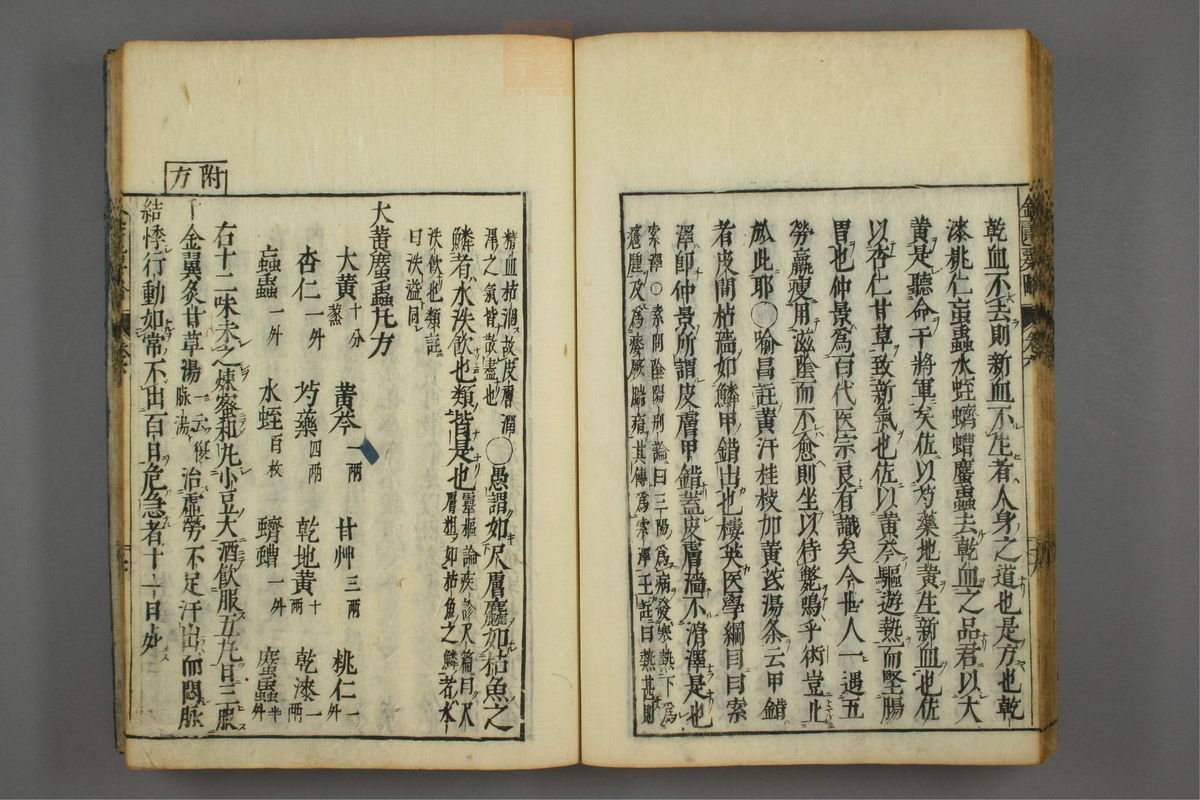 乾血不去則新血不生者人身之道也是方也乾
漆桃仁䖟蟲水蛭蠐螬䗪蟲去乾血之品君以大
黃是聽命干將軍矣佐以芍藥地黃生新血也佐
以杏仁甘草致新氣也佐以黃芩驅遊熱而堅腸
胃也仲景爲百代医宗良有識矣今世人一遇五
勞羸瘦用滋陰而不愈則坐以待斃嗚乎術豈止
於此耶○喻昌註黃汗桂枝加黃芪湯条云甲錯
者皮間枯濇如鱗甲錯出也樓英医學綱目曰索
澤即仲景所謂皮膚甲錯蓋皮膚濇不滑澤是也
索澤○素問陰陽別論曰三陽爲病發寒熱下爲
癰腫及爲痿厥腨㾓其傳爲索澤王註曰熱甚則
精血枯涸故皮膚潤
澤之氣皆散盡也
○愚謂如尺膚麤如枯魚之
鱗者水泆飲也類皆是也
靈樞論疾診尺篇曰尺
膚粗如枯魚之鱗者水
泆飲也類註
曰泆溢同
大黃䗪蟲丸方
大黃十分蒸 黃芩一兩 甘艸三兩 桃仁一舛
杏仁一舛 芍藥四兩 乾地黃十兩 乾漆一兩
䖟蟲一舛 水蛭百枚 蠐螬一舛 䗪蟲半舛
右十二味末之煉蜜和丸小豆大酒飲服五丸日三服
附方
千金翼灸甘草湯一云復脉湯治虛勞不足汗出而悶脉
結悸行動如常不出百日危急者十一日死